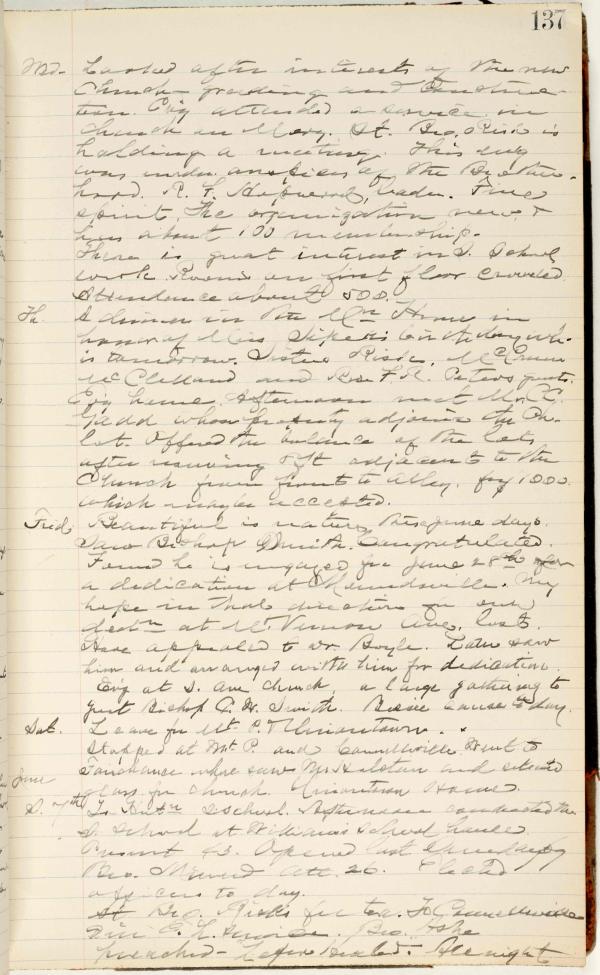 137
Wed. Looked after interests of the new
Church - grading and construc-
tion. Ev'g attended a service in
Church on Mery. St. Bro. Risk is
holding a meeting. This evg
was under auspices of the Brother-
hood. R. L. Hopwood, leader. Fine
spirit. The organization new &
has about 100 membership.
There is great interest in S. School
work. Rooms on first floor crowded.
Attendance about 500.
Th. A dinner in the Home in
honor of Miss birthday wh.
is tomorrow. Sisters Risk, McCrum
McClelland and Rose F. R. Peters guests.
Ev'g home. Afternoon met Mr. R.
Gadd whose property adjoins the Ch.
lot. Offered the balance of the lots
after reserving 8 ft adjacent to the
Church from front to Alley. for 1000.
which may be accepted.
Frid. Beautiful is nature these June days.
Saw Bishop Smith. Congratulated.
Found he is engaged for June 28th for
a dedication at Moundsville. My
hope in that direction for our
dedtn at Mt. Vernon Ave. lost.
Have appealed to Dr. Boyle. Later saw
him and arranged with him for dedication.
Ev'g at S. Ave Church, a large gathering to
greet Bishop C. W. Smith. Rosie came to day.
Sat. Leave for Mt. P. & Uniontown.
Stopped at Mt. P. and Connellsville. Went to
Fairchance where saw Mr. Halstan and selected
glass for church. Uniontown Home.
June
S. 7th To S School. Afternoon conducted the
S. School at Williams School house.
Present 43. Opened last Sunday by
Bro. Att. 26. Elected
officers to day.
Bro. Risks for tea. To Connellsville
E. L. service. Bro.
preached - Leper Healed. All night